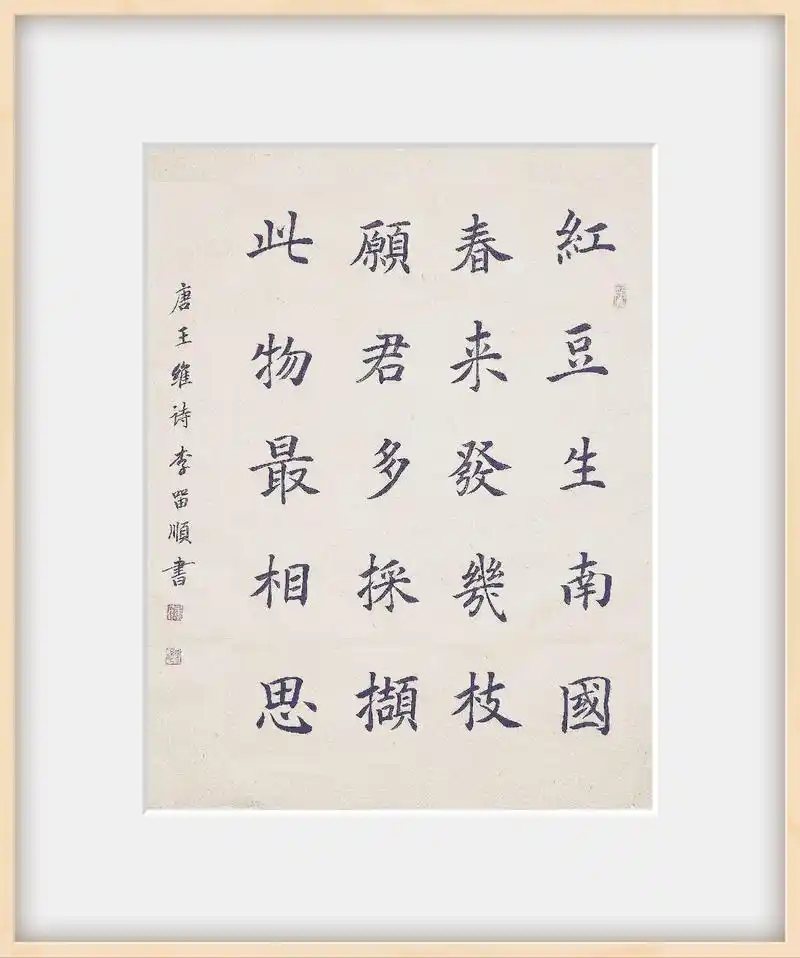 紅豆生南國
春来發幾枝
願君多採擷
此物最相思
唐王維诗李留順書